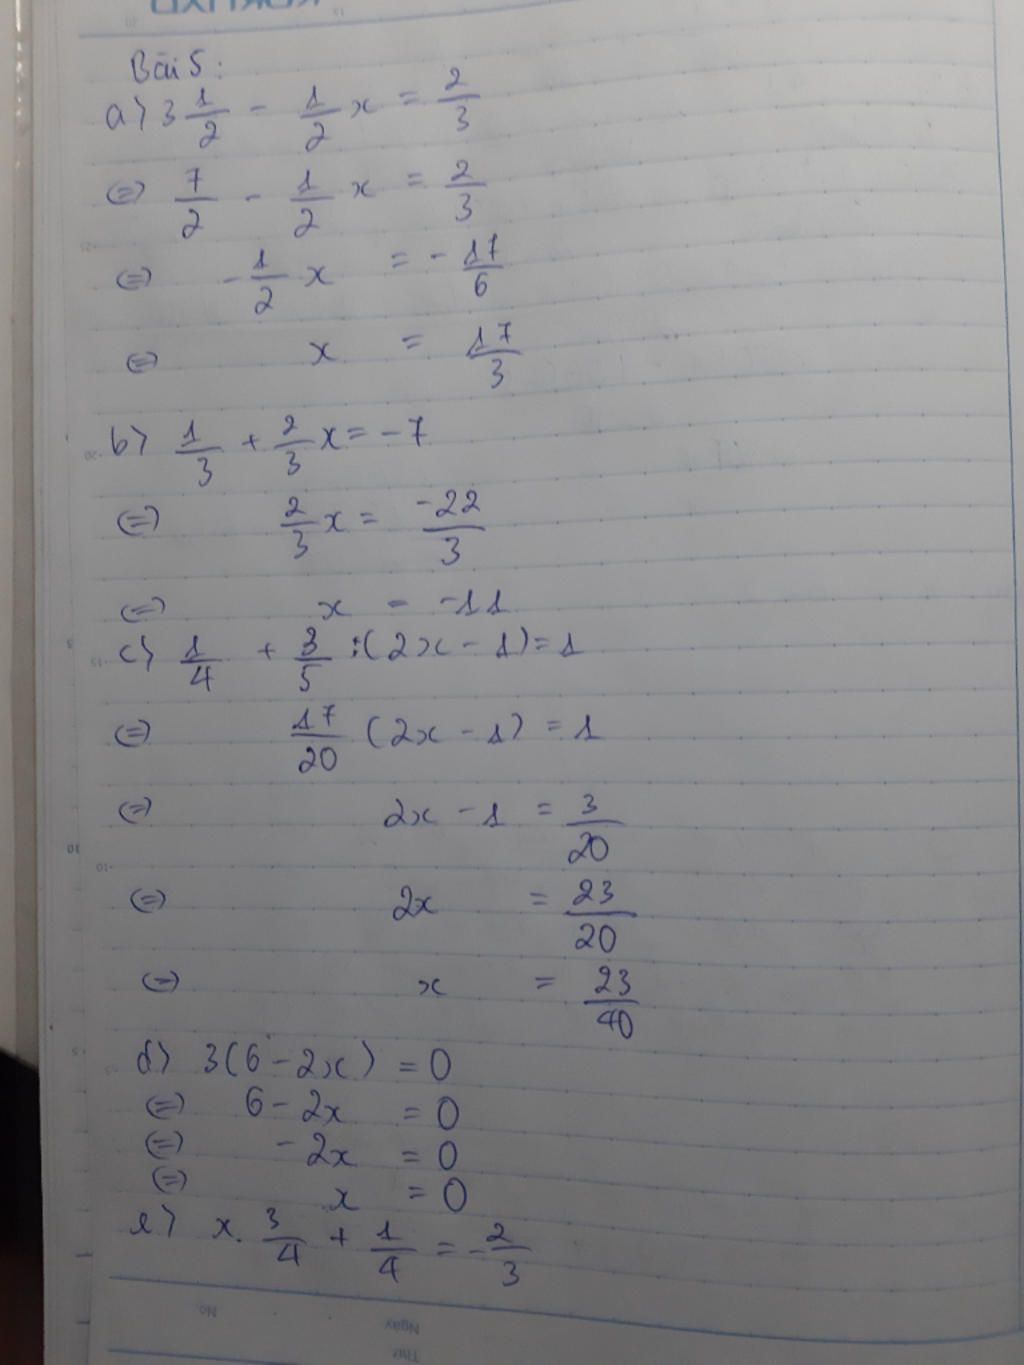 Bài 5:
a) 3 1/2 - 1/2 x = 2/3
(=) 7/2 - 1/2 x = 2/3
(=) -1/2 x = - 17/6
(=) x = 17/3
b) 1/3 + 2/3 x = -7
(=) 2/3 x = -22/3
(=) x = -11
c) 1/4 + 3/5 :(2x - 1) = 1
(=) 17/20 (2x - 1) = 1
(=) 2x - 1 = 3/20
(=) 2x = 23/20
(=) x = 23/40
d) 3(6 - 2x) = 0
(=) 6 - 2x = 0
(=) - 2x = 0
(=) x = 0
e) x. 3/4 + 1/4 = - 2/3
No.
Ngày
Thứ